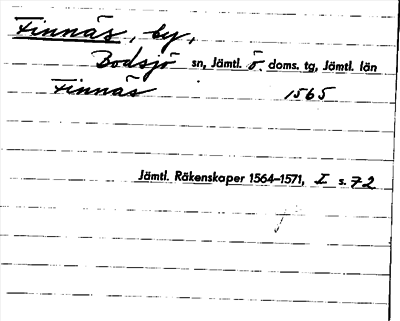 Finnäs, by,
Bodsjö sn, Jämtl. ö. doms. tg, Jämtl. län
Finnäs 1565
Jämtl. Räkenskaper 1564–1571, I s. 72